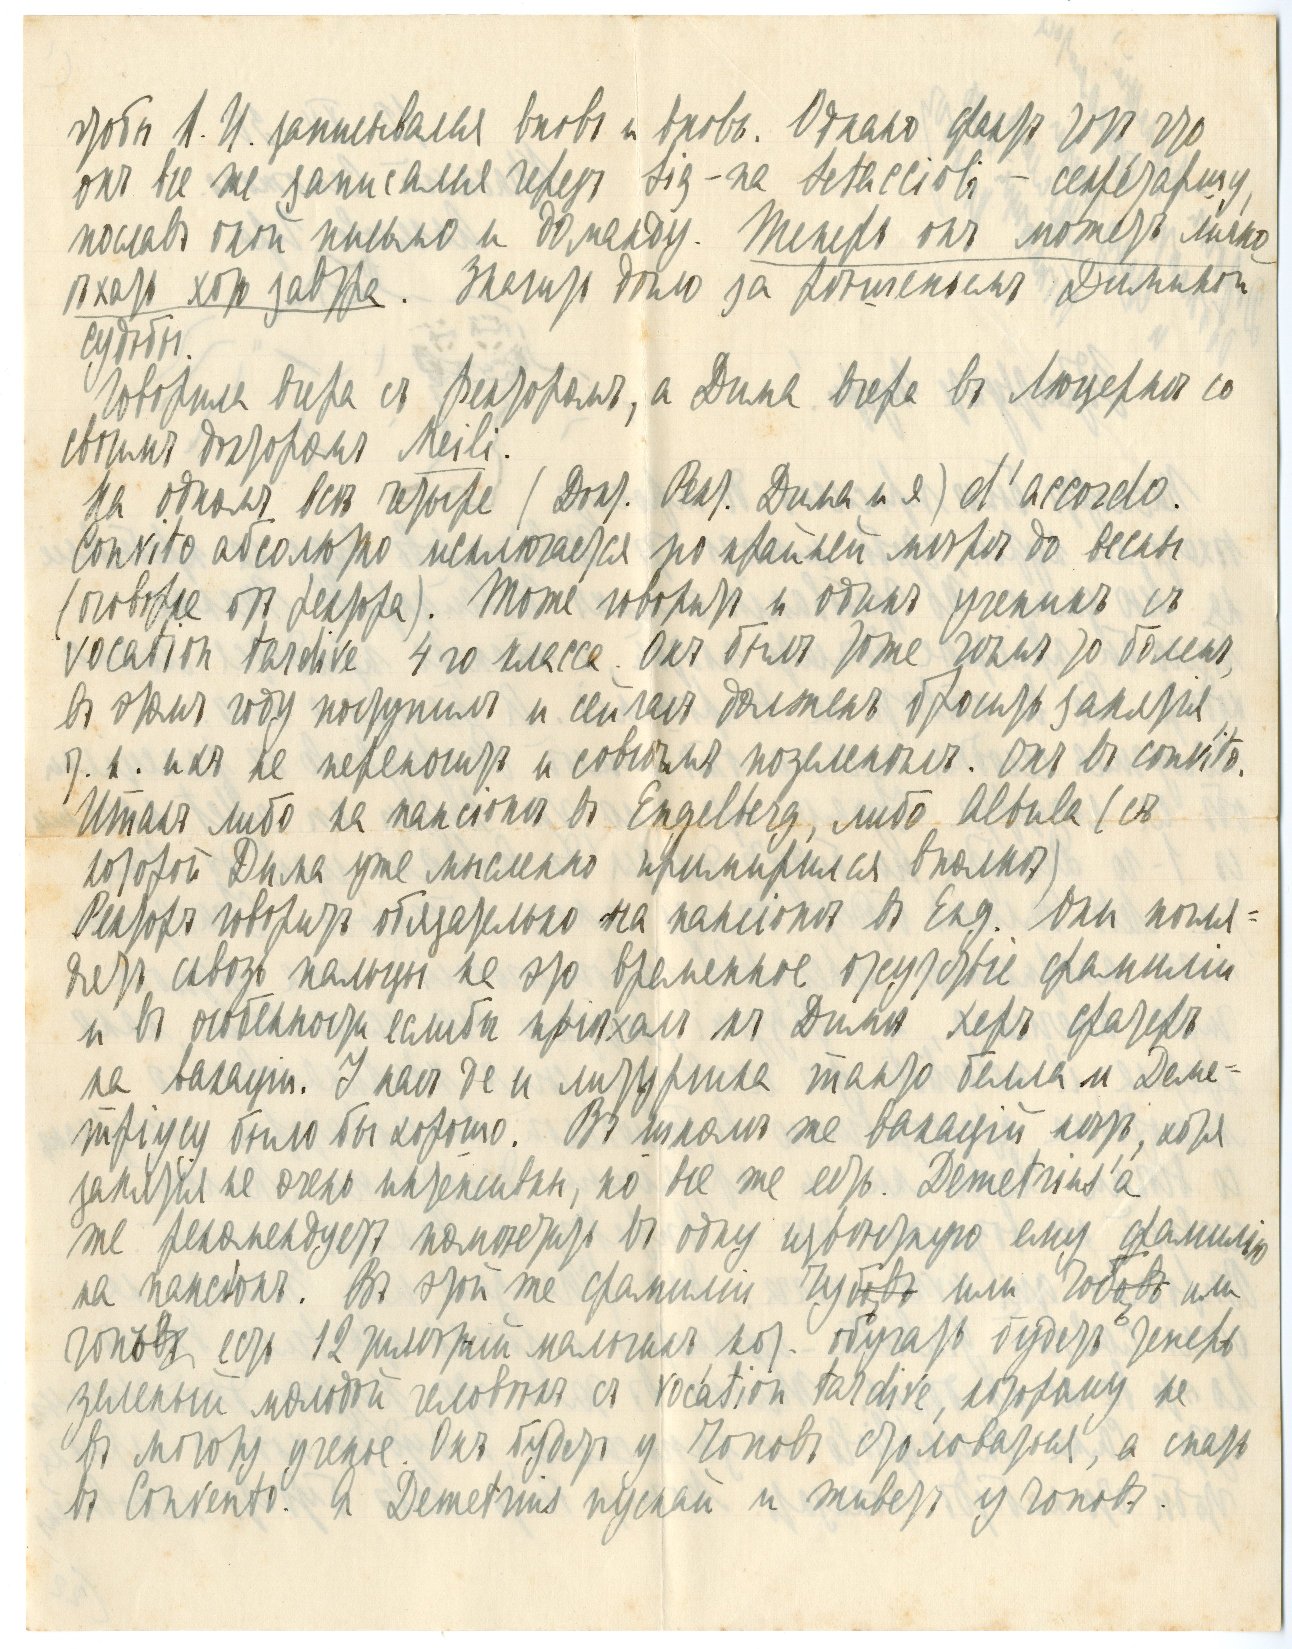 чтобы А. И. записывался вновь и вновь. Однако фактъ тотъ что
онъ все же записался черезъ Sig-na Setaccioli – секретаршу,
пославъ оной письмо и доманду. Теперь онъ можетъ лично
ѣхать хоть завтра. Значитъ дѣло за рѣшеньемъ Диминой
судьбы.
Говорила вчера съ Ректоромъ, а Дима вчера въ Люцернѣ со
своимъ докторомъ Meili.
На одномъ всѣ четыре (Докт. Рект. Дима и я) d'accordo.
Convito абсолютно исключается по крайней мѣрѣ до весны
(оговорре отъ ректора). Тоже говоритъ и одинъ ученикъ съ
vocation tardive 4го класса. Онъ былъ тоже боленъ,
въ этомъ году поступилъ и сейчасъ долженъ бросить занятія
т. к. ихъ не переноситъ и совсѣмъ позеленѣлъ. Онъ въ convito.
Итакъ либо на пансіонъ въ Engelberg, либо Albula (съ
которой Дима уже мысленно примирился вполнѣ)
Ректоръ говоритъ обязательно на пансіонъ въ Eng. Они погля=
дятъ сквозь пальцы на это временное отсутствіе фамиліи
и въ особенности еслибы пріѣхалъ къ Димѣ херъ фатеръ
на вакаціи. У насъ де и литургика танто белла и Деме=
тріусу было бы хорошо. Въ школѣ же вакацій нѣтъ, хотя
занятія не очень интенсивны, но все же есть. Demetrius'а
же рекомендуетъ помѣстить въ одну извѣстную ему фамилію
на пансіонъ. Въ этой же фамиліи Чубовъ или Чобовъ или
Чоповъ есть 12 тилѣтній мальчикъ кот. обучать будетъ теперь
зеленый молодой человѣкъ съ vocation tardive, которому не
въ моготу ученье. Онъ будетъ у Чоповъ столоваться, а спать
въ Convento. А Demetrius пускай и живетъ у Чоповъ.